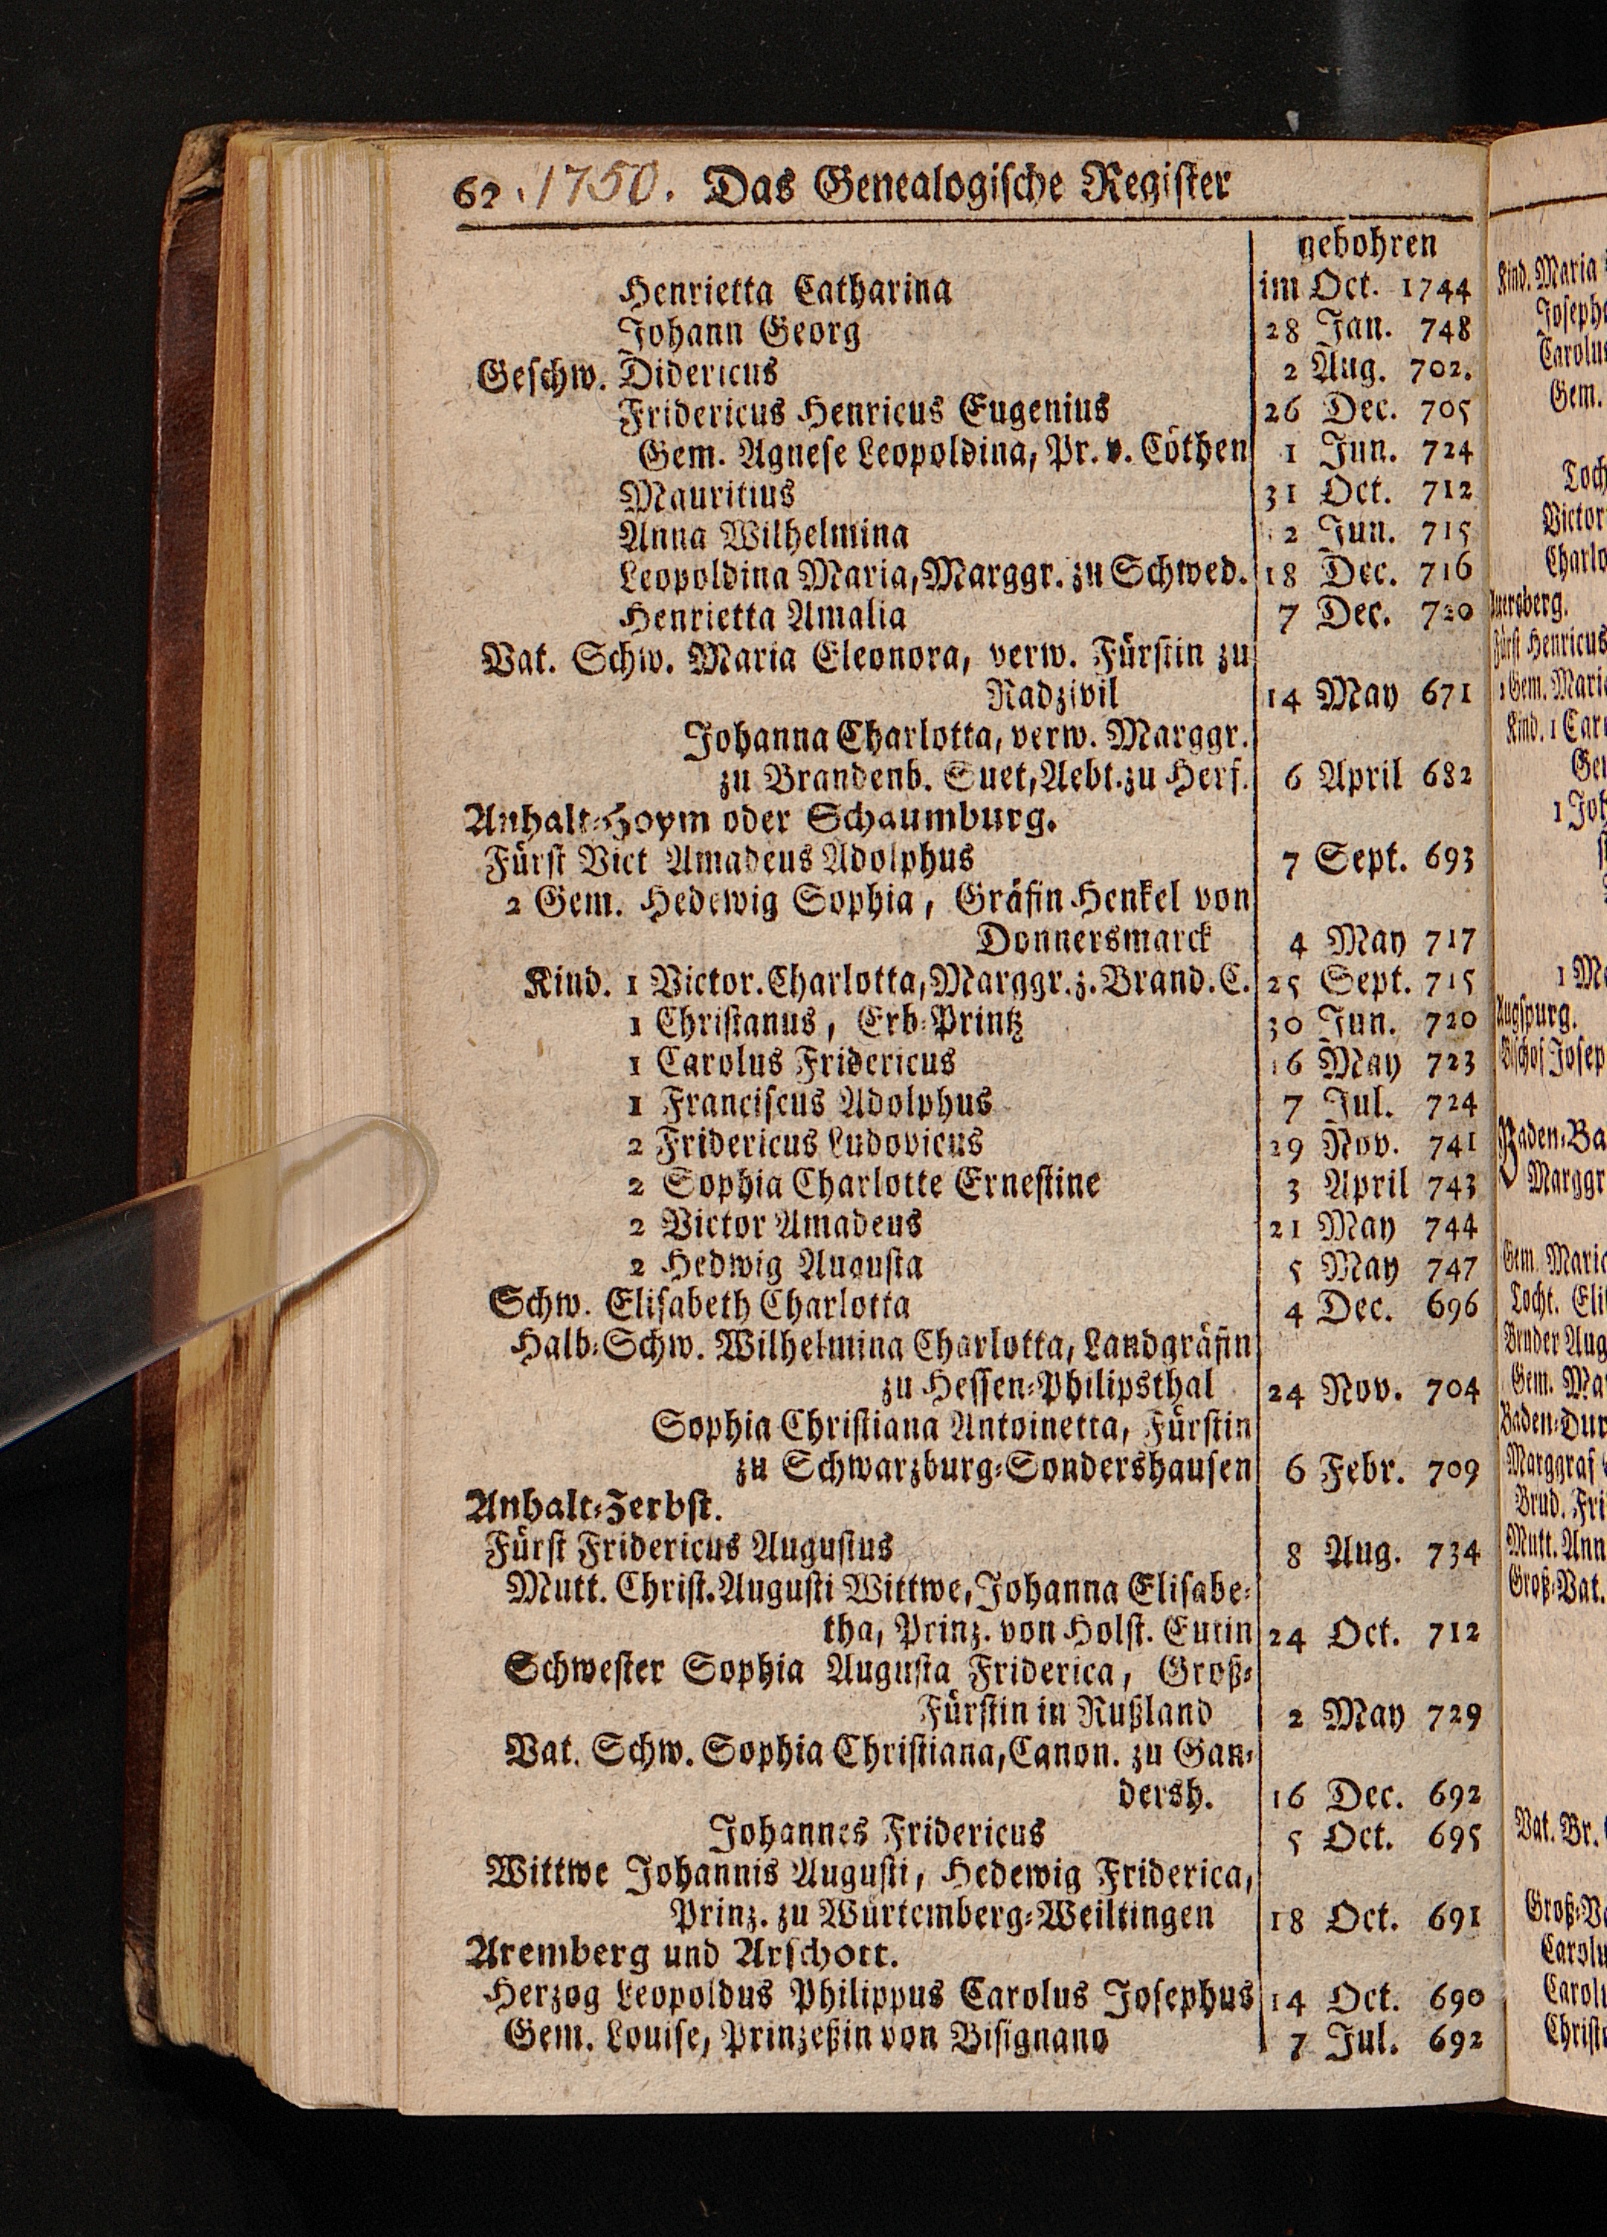 62 . 1750. Das Genealogische Register
gebohren
Henrietta Catharina im Oct. 1744
Johann Georg 28 Jan. 748
Geschw. Didericus 2 Aug. 702.
Fridericus Henricus Eugenius 26 Dec. 705
Gem. Agnese Leopoldina, Pr. v. Cöthen 1 Jun. 724
Mauritius 31 Oct. 712
Anna Wilhelmina 2 Jun. 715
Leopoldina Maria, Marggr. zu Schwed. 18 Dec. 716
Henrietta Amalia 7 Dec. 720
Vat. Schw. Maria Eleonora, verw. Fürstin zu
Radzivil 14 May 671
Johanna Charlotta, verw. Marggr.
zu Brandenb. Suet, Aebt. zu Herf. 6 April 682
Anhalt-Hoym oder Schaumburg.
Fürst Vict Amadeus Adolphus 7 Sept. 693
2 Gem. Hedewig Sophia, Gräfin Henkel von
Donnersmarck 4 May 717
Kind. 1 Victor. Charlotta, Marggr. z. Brand. C. 25 Sept. 715
1 Christanus, Erb-Printz 30 Jun. 720
1 Carolus Fridericus 16 May 723
1 Franciscus Adolphus 7 Jul. 724
2 Fridericus Ludovicus 29 Nov. 741
2 Sophia Charlotte Ernestine 3 April 743
2 Victor Amadeus 21 May 744
2 Hedwig Augusta 5 May 747
Schw. Elisabeth Charlotta 4 Dec. 696
Halb-Schw. Wilhelmina Charlotta, Landgräfin
zu Hessen-Philipsthal 24 Nov. 704
Sophia Christiana Antoinetta, Fürstin
zu Schwarzburg-Sondershausen 6 Febr. 709
Anhalt-Zerbst.
Fürst Fridericus Augustus 8 Aug. 734
Mutt. Christ. Augusti Wittwe, Johanna Elisabe-
tha, Prinz. von Holst. Eutin 24 Oct. 712
Schwester Sophia Augusta Friderica, Groß-
Fürstin in Rußland 2 May 729
Vat. Schw. Sophia Christiana, Canon. zu Gan-
dersh. 16 Dec. 692
Johannes Fridericus 5 Oct. 695
Wittwe Johannis Augusti, Hedewig Friderica,
Prinz. zu Würtemberg-Weiltingen 18 Oct. 691
Aremberg und Arschott.
Herzog Leopoldus Philippus Carolus Josephus 14 Oct. 690
Gem. Louise, Prinzeßin von Bisignano 7 Jul. 692
Kind. Maria
Gem.
Victor
Auersberg.
Fürst Henricus
1 Gem.
Kind. 1
1
1
Augspurg.
Bischof
Marggr
Gem. Maria
Tocht.
Bruder
Gem.
Marggraf
Brud.
Mutt.
Groß-Vat.
Vat. Br.